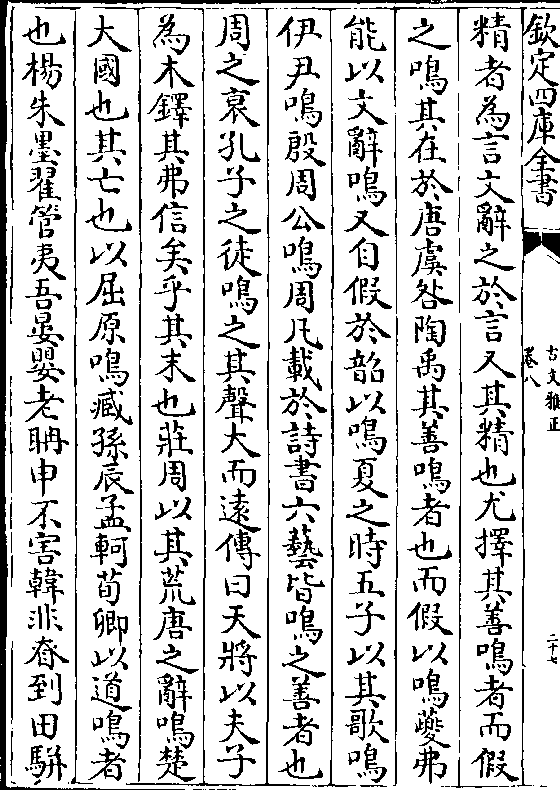 欽定四庫全書
古文雅正
卷八
二十七
精者為言文辭之於言又其精也尤擇其善鳴者而假
之鳴其在於唐虞咎陶禹其善鳴者也而假以鳴夔弗
能以文辭鳴又自假於韶以鳴夏之時五子以其歌鳴
伊尹鳴殷周公鳴周凡載於詩書六藝皆鳴之善者也
周之衰孔子之徒鳴之其聲大而遠傳曰天將以夫子
為木鐸其弗信矣乎其末也莊周以其荒唐之辭鳴楚
大國也其亡也以屈原鳴臧孫辰孟軻荀卿以道鳴者
也楊朱墨翟管夷吾晏嬰老聃申不害韓非眘到田駢